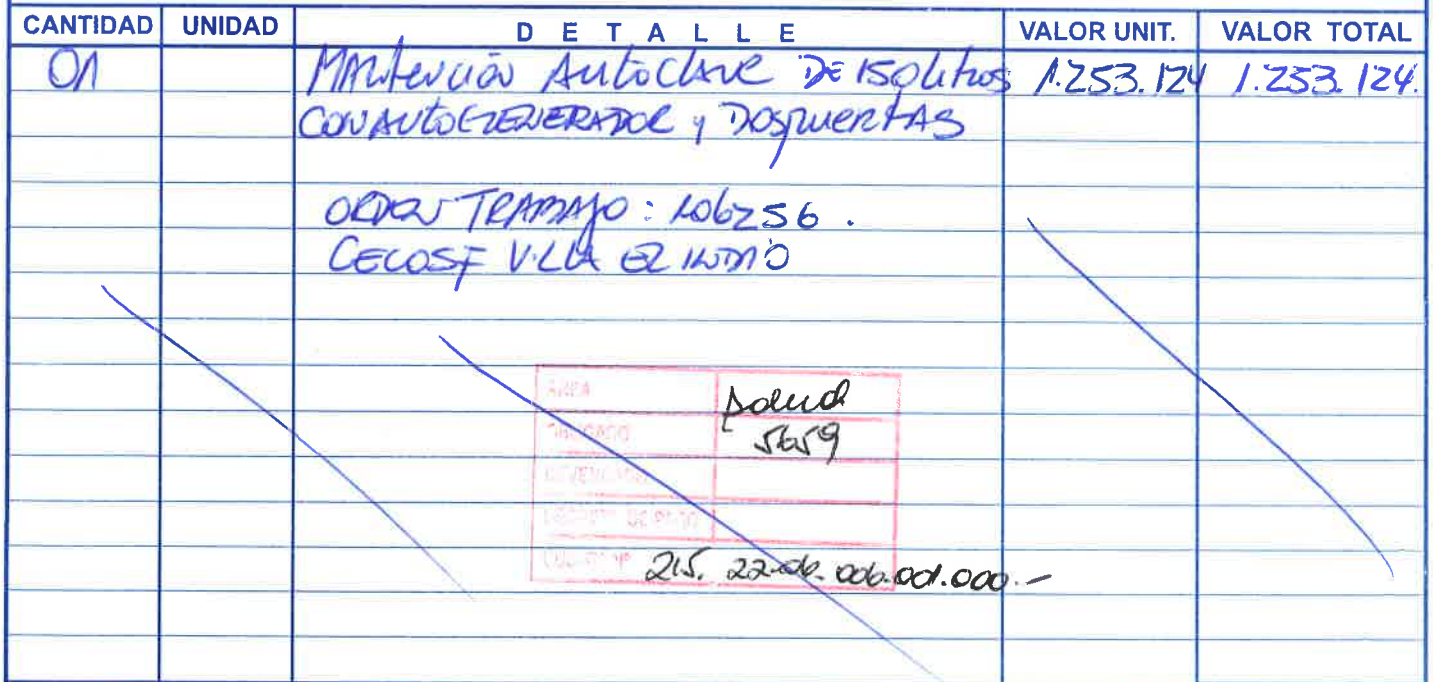 CANTIDAD UNIDAD DETALLE VALOR UNIT. VALOR TOTAL
01 Mantención Autoclave DE 150 litros 1.253.124 1.253.124.
CON AUTOGENERADOR y DOS PUERTAS
ORDEN TRABAJO: 106256.
CECOSF VILLA EL INDIO
AREA Salud
OBLIGADO 5659
DEVENGADO
215. 22.06.006.001.000.-